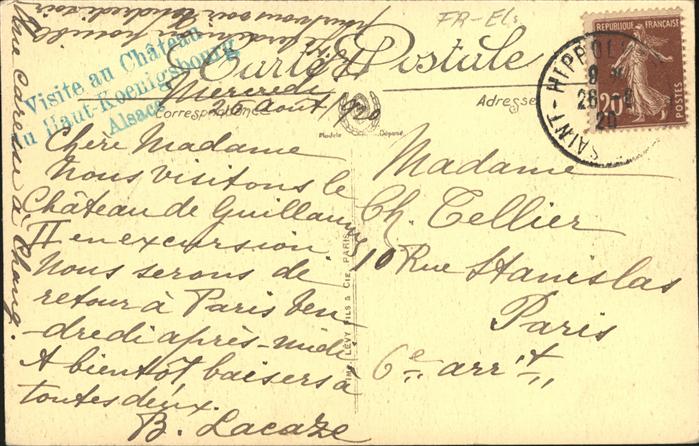 FR-Els
Visite au Château
du Haut-Koenigsbourg
Alsace
Carte Postale
Correspondance
Adresse
Modèle Déposé
REPUBLIQUE FRANÇAISE
20
POSTES
SAINT-HIPPOLY
26 -8
20
Mercredi
26 août 1920
Chère Madame
Nous visitons le
Château de Guillaume
II en excursion.
Nous serons de
retour à Paris Ven-
dredi après-midi
A bientôt baisers à
toutes deux.
B. Lacaze
Madame
Ch. Tellier
10 Rue Stanislas
Paris
6e arrt
IMP. LÉVY FILS & CIE, PARIS
Une caresse à
vendredi soir